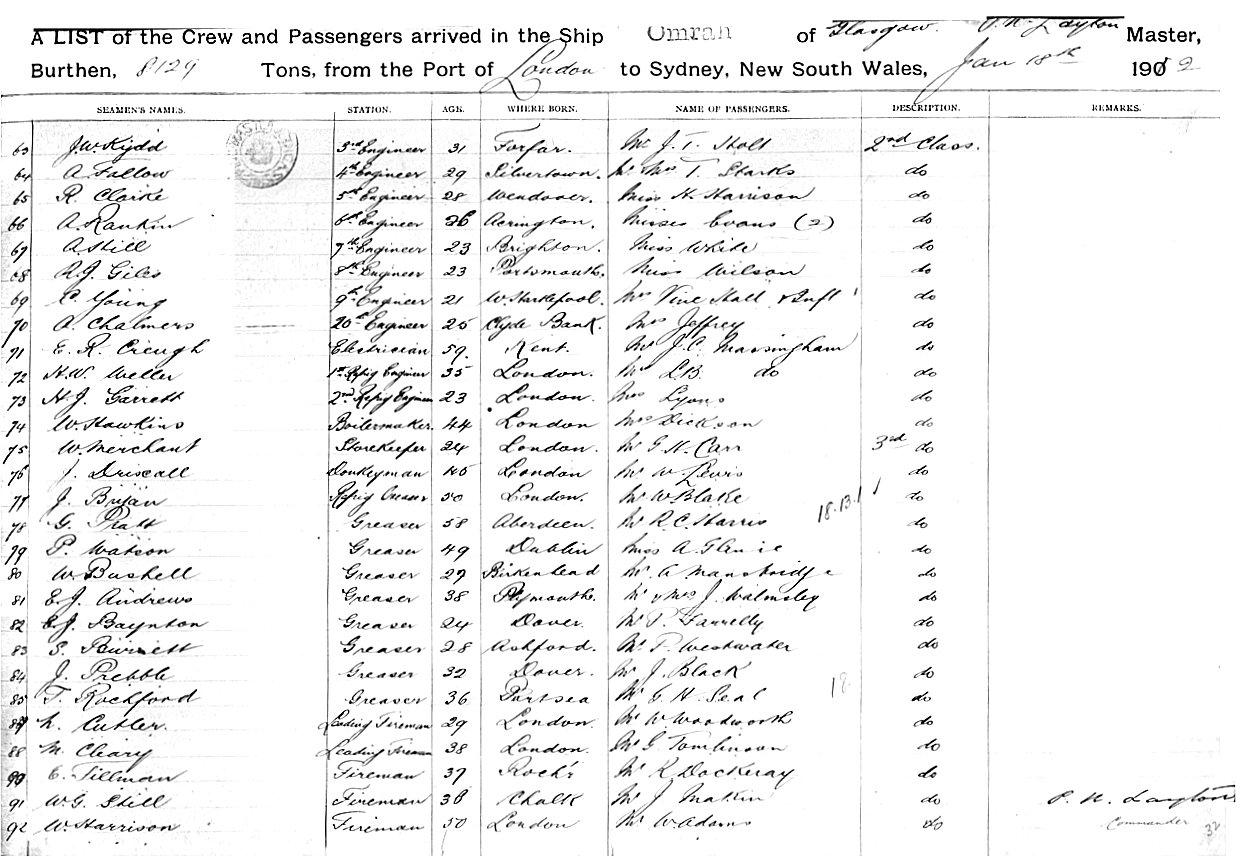 A LIST of the Crew and Passengers arrived in the Ship Omrah of Glasgow. P. N. Layton Master,
Burthen, 8129 Tons, from the Port of London to Sydney, New South Wales, Jan 18th 1902
SEAMEN'S NAMES. STATION. AGE. WHERE BORN. NAME OF PASSENGERS. DESCRIPTION. REMARKS.
63 J.W. Kydd 3rd Engineer 31 Forfar. Mr J. T. Holt 2nd Class.
64 A. Fallow 4th Engineer 29 Silvertown. Mr Mrs T. Starks do
65 R. Clarke 5th Engineer 28 Wendover. Miss H. Harrison do
66 A. Rankin 6th Engineer 26 Acrington. Misses Evans (2) do
67 A. Hill 7th Engineer 23 Brighton. Miss White do
68 A.J. Giles 8th Engineer 23 Portsmouth. Miss Wilson do
69 C. Young 9th Engineer 21 W. Hartlepool. Mrs Vine Hall & Inft do
70 A. Chalmers 10th Engineer 25 Clyde Bank. Mrs Jeffrey do
71 E. R. Creugh Electrician 59. Kent. Mr J.C. Massingham do
72 H.W. Weller 1st Refrig Engineer 35 London. Mr L.B. do do
73 H. J. Garrett 2nd Refrig Engineer 23 London. Mrs Lyons do
74 W. Hawkins Boilermaker. 44 London Mrs Dickson do
75 W. Merchant Storekeeper 24 London. Mr G. H. Carr 3rd do
76 J. Driscall Donkeyman 45 London Mr W. Lewis do
77 J. Bryan Refrig Greaser 50 London. Mr W. Blake do
78 G. Pratt Greaser 58 Aberdeen. Mr R. C. Harris 18.13.1 do
79 P. Watson Greaser 49 Dublin Miss A. Glennie do
80 W. Bushell Greaser 27 Birkenhead Mr A Mansbridge do
81 E.J. Andrews Greaser 38 Plymouth. Mr & Mrs J. Walmsley do
82 C.J. Baynton Greaser 24 Dover. Mr P. Farrelly do
83 S. Burnett Greaser 28 Ashford. Mr P. Westwater do
84 J. Prebble Greaser 32 Dover. Mr J. Black do
85 T. Rochford Greaser 36 Portsea Mr G. H. Seal 18 do
Cutler. Leading Fireman 29 London. Mr W Woodworth do
88 M. Cleary Leading Fireman 38 London. Mr G. Tomlinson do
90 C. Tillman Fireman 37 Roch'r Mr R. Dockeray do
91 W.G. Still Fireman 38 Chalk Mr J Makin do P. N. Layton
92 W. Harrison Fireman 50 London Mr W. Adams do Commander 32